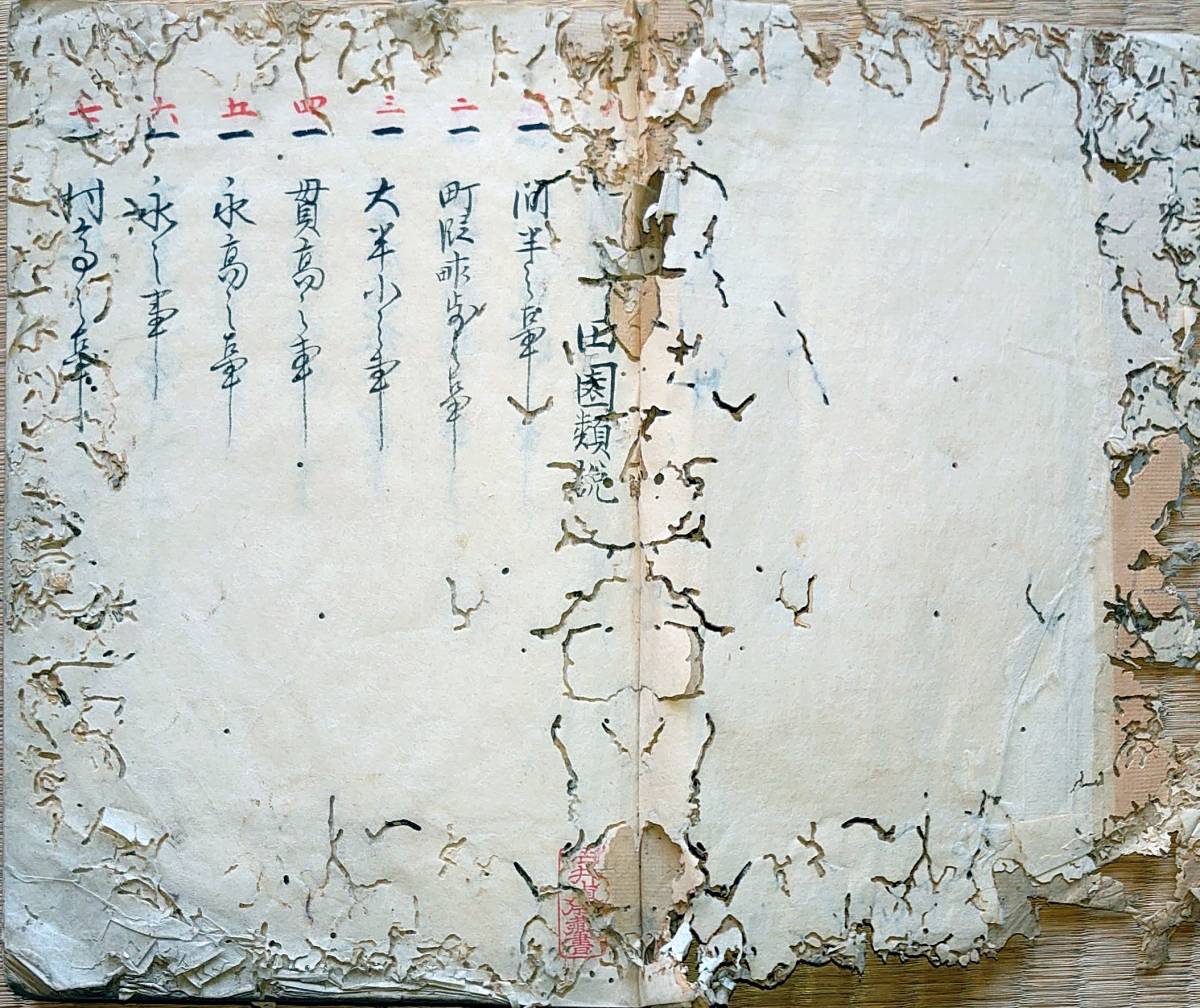 田園類説
一 間半之事
二
一 町段畝歩之事
三
一 大半小之事
四
一 貫高之事
五
一 永高之事
六
一 永之事
七
一 村高之事